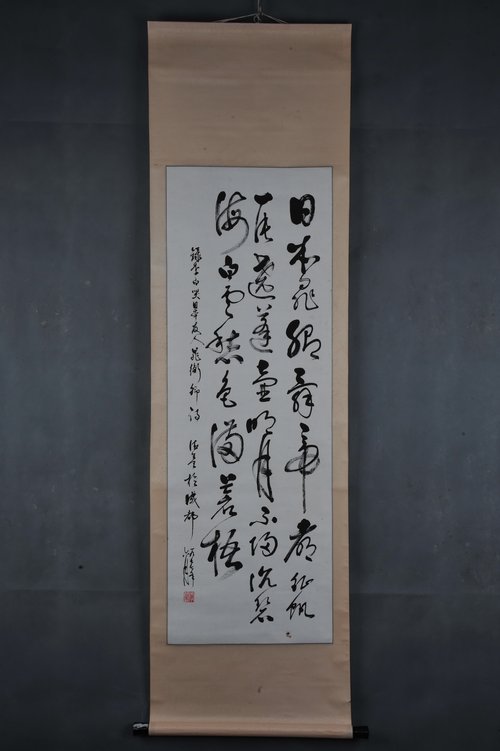 日本晁卿辭帝都征帆
一片遶蓬壺明月不歸沉碧
海白雲愁色滿蒼梧
錄李白哭日本友人晁衡卿詩 於成都